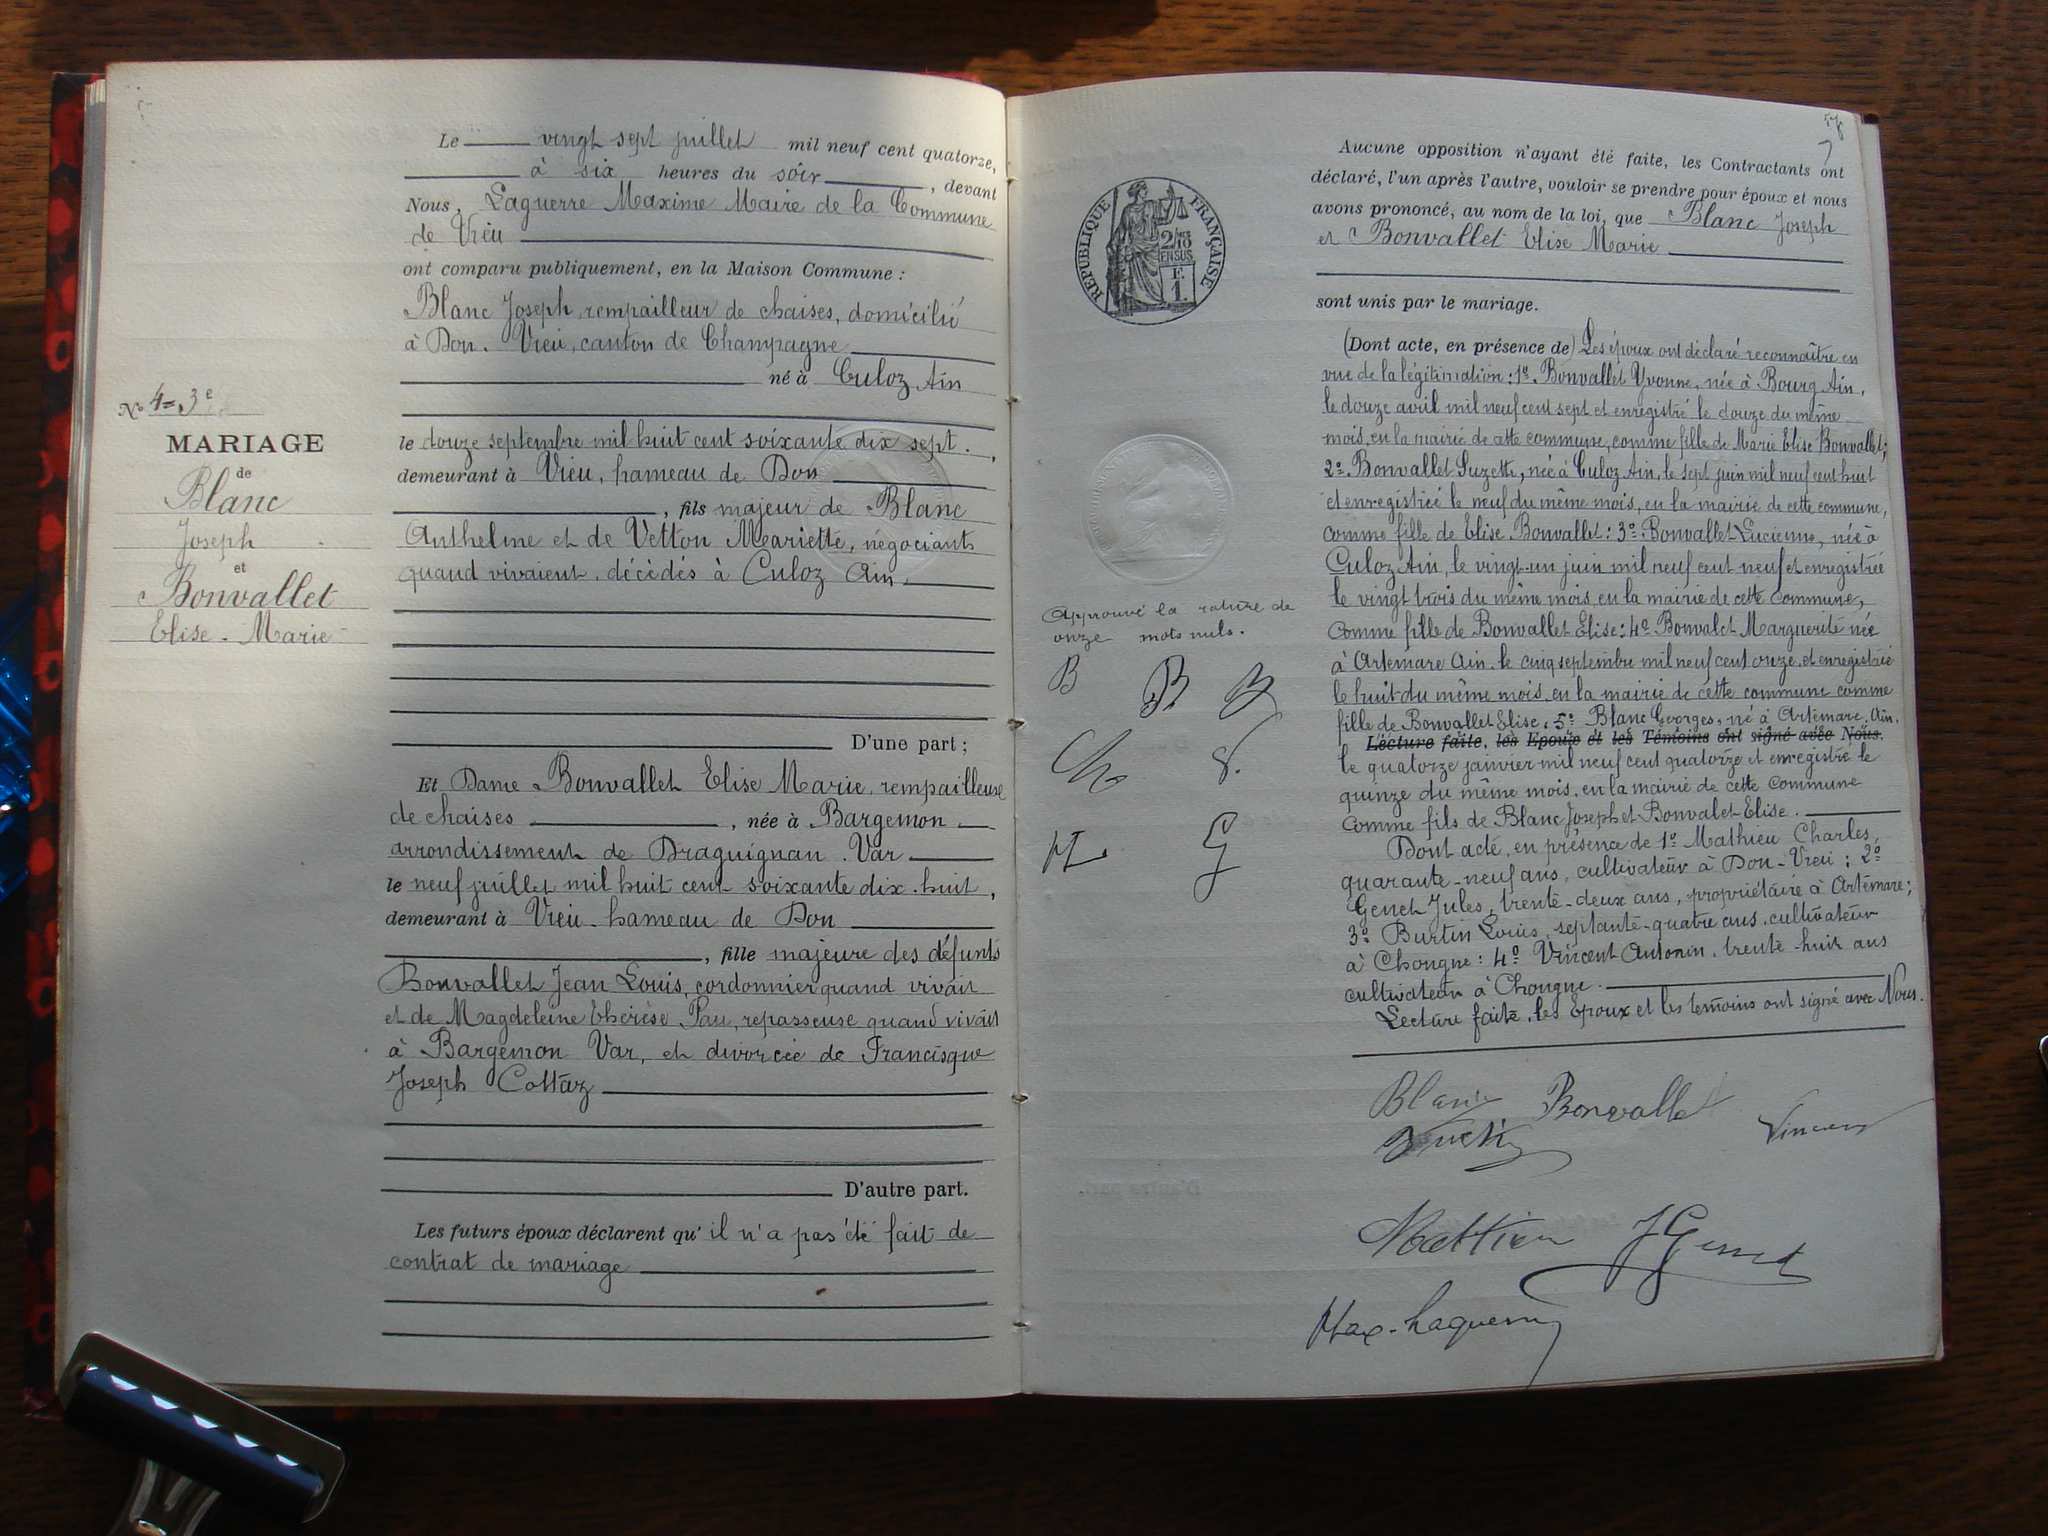 Le vingt sept juillet mil neuf cent quatorze,
à six heures du soir, devant
Nous, Laguerre Maxime Maire de la Commune
de Vieu
ont comparu publiquement, en la Maison Commune :
Blanc Joseph, rempailleur de chaises, domicilié
à Don. Vieu, canton de Champagne
né à Culoz Ain
le douze septembre mil huit cent soixante dix sept.,
demeurant à Vieu, hameau de Don
, fils majeur de Blanc
Anthelme et de Vetton Mariette, négociants
quand vivaient, décédés à Culoz Ain.
D'une part ;
Et Dame Bonvallet Elise Marie, rempailleuse
de chaises, née à Bargemon
arrondissement de Draguignan. Var
le neuf juillet mil huit cent soixante dix-huit,
demeurant à Vieu. hameau de Don
, fille majeure des défunts
Bonvallet Jean Louis, cordonnier quand vivait
et de Magdeleine Thérèse Pau, repasseuse quand vivait
à Bargemon Var, et divorcée de Francisque
Joseph Cottaz
D'autre part.
Les futurs époux déclarent qu'il n'a pas été fait de
contrat de mariage
No 4=3e
MARIAGE
de
Blanc
Joseph
et
Bonvallet
Elise-Marie
Aucune opposition n'ayant été faite, les Contractants ont
déclaré, l'un après l'autre, vouloir se prendre pour époux et nous
avons prononcé, au nom de la loi, que Blanc Joseph
et Bonvallet Elise Marie
sont unis par le mariage.
(Dont acte, en présence de) Les époux ont déclaré reconnaître en
vue de la légitimation : 1º. Bonvallet Yvonne, née à Bourg Ain,
le douze avril mil neuf cent sept et enregistré le douze du même
mois, en la mairie de cette commune, comme fille de Marie Elise Bonvallet;
2º. Bonvallet Suzette, née à Culoz Ain, le sept juin mil neuf cent huit
et enregistrée le neuf du même mois, en la mairie de cette commune,
comme fille de Elise Bonvallet : 3º. Bonvallet Lucienne, née à
Culoz Ain, le vingt-un juin mil neuf cent neuf et enregistrée
le vingt trois du même mois en la mairie de cette commune,
comme fille de Bonvallet Elise : 4º Bonvalet Marguerite née
à Artemare Ain. le cinq septembre mil neuf cent onze, et enregistrée
le huit du même mois en la mairie de cette commune comme
fille de Bonvallet Elise, 5º. Blanc Georges, né à Artemare, Ain,
Lecture faite, les Epoux et les Témoins ont signé avec Nous.
le quatorze janvier mil neuf cent quatorze et enregistré le
quinze du même mois, en la mairie de cette commune
comme fils de Blanc Joseph et Bonvalet Elise.
Dont acté, en présence de 1º Mathieu Charles,
quarante-neuf ans, cultivateur à Don-Vieu ; 2º
Genet Jules, trente-deux ans, propriétaire à Artemare;
3º Burtin Louis, septante-quatre ans, cultivateur
à Chongne : 4º Vincent Antonin, trente-huit ans
cultivateur à Chongne.
Lecture faite, les Epoux et les témoins ont signé avec Nous.
REPUBLIQUE FRANÇAISE
2/10
EN SUS
F.
1.
Approuvé la rature de
onze mots nuls.
B B
Blanc Bonvallet Vincent
Mathieu JGenet
Max-Laguerre